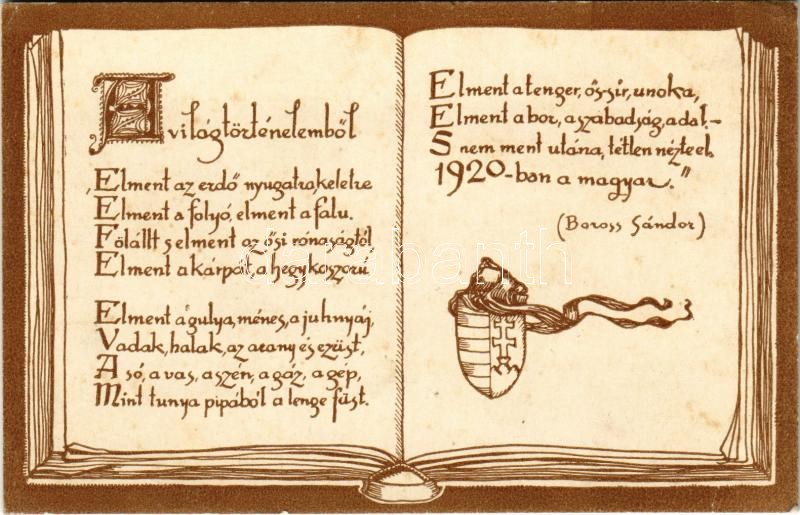 A világtörténelemből
„Elment az erdő nyugatra, keletre
Elment a folyó, elment a falu.
Fölállt s elment az ősi rónaságtól
Elment a kárpát, a hegykoszorú
Elment a gulya, ménes, a juhnyáj,
Vadak, halak, az arany és ezüst,
A só, a vas, a szén, a gáz, a gép,
Mint tunya pipából a lenge füst.
Elment a tenger, ős-sir, unoka,
Elment a bor, a szabadság, a dal.-
S nem ment utána, tétlen nézte el,
1920-ban a magyar."
(Boross Sándor)
darabanth